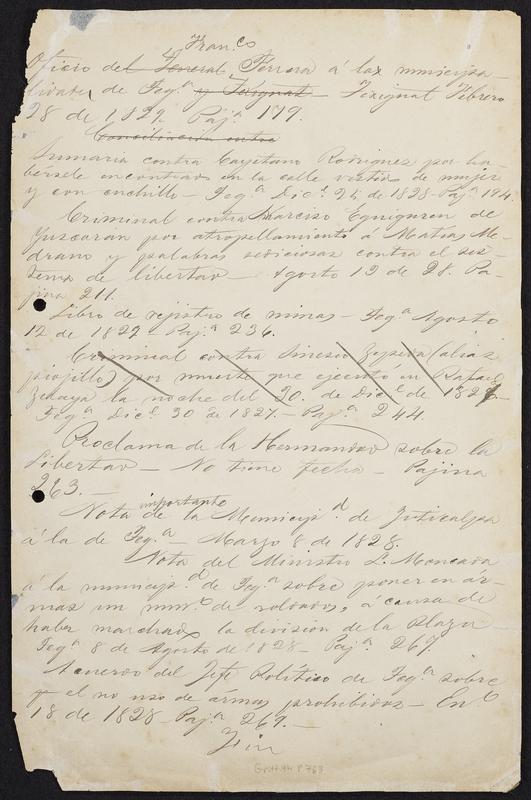 Fran.co
Oficio del General Ferrera á las municipa-
lidades de Teg.a y Texiguat - Texiguat Febrero
28 de 1829 Paj.a 179.
Conciliación entre
Sumaria contra Cayetano Rodriguez por ha-
bersele encontrado en la calle vestido de mujer
y con cuchillo - Teg.a Dic.e 24 de 1828 - Paj.a 194
Criminal contra Narciso Eguiguren de
Yuscarán por atropellamiento á Matias Me-
drano y palabras sediciosas contra el sis-
tema de libertad - Agosto 19 de 28. Pa-
jina 211.
Libro de rejistro de minas - Teg.a Agosto
12 de 1829 - Paj.a 236.
Criminal contra Sinesio Zepeda (alias
piojillo) por muerte que ejecutó en Rafael
Zelaya la noche del 20. de Dic.e de 1827
Teg.a Dic.e 30 de 1827. - Paj.a 244.
Proclama de la Hermandad sobre la
libertad - No tiene fecha - Pajina
263. -
importante
Nota de la Municip.d de Juticalpa
á la de Teg.a - Marzo 8 de 1828.
Nota del Ministro L. Moncada
á la municip.d de Teg.a sobre poner en ar-
mas un num.o de soldados, á causa de
haber marchado la división de la plaza
Teg.a 8 de Agosto de 1828 - Paj.a 267.
Acuerdo del Jefe Político de Teg.a sobre
el no uso de armas prohibidas - En.o
18 de 1828 - Paj.a 269. -
Fin